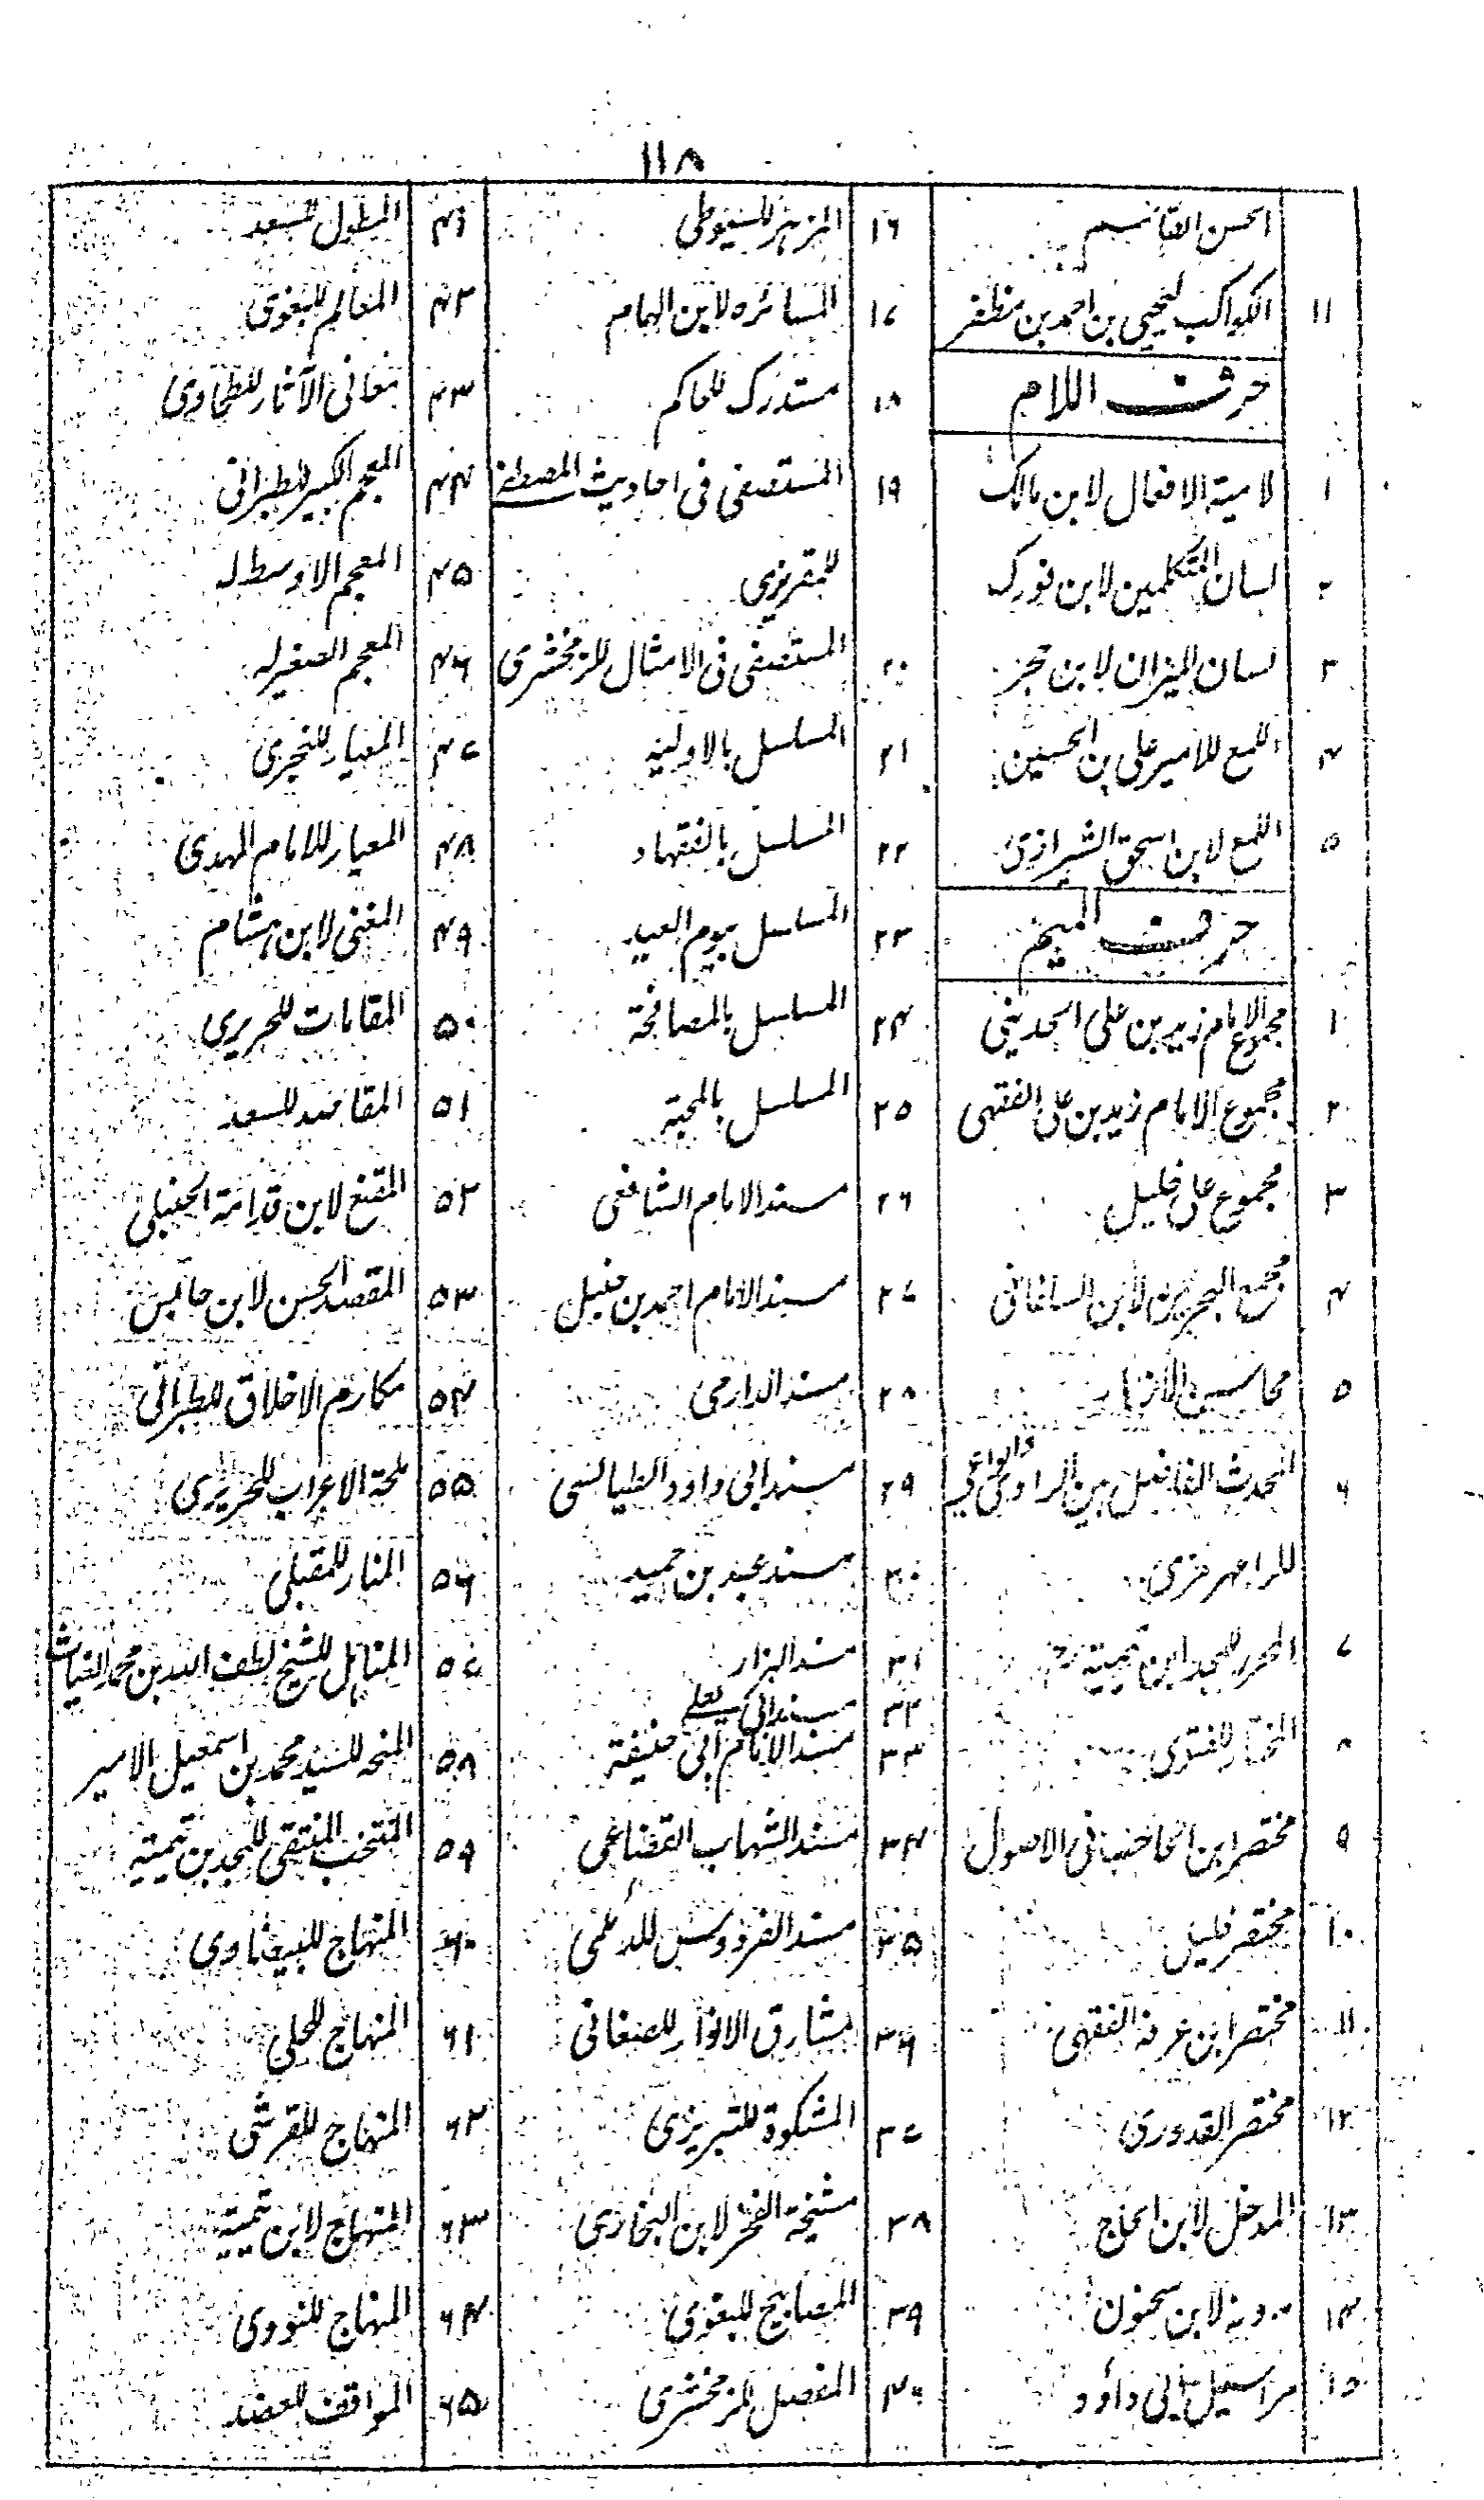 ۱۱۸
الحسن القاسم
۱۱ الکواکب لیحیی بن احمد بن مظفر
حرف اللام
۱ لامیة الافعال لابن مالک
۲ لسان المتکلمین لابن فورک
۳ لسان المیزان لابن حجر
۴ اللمع للامیر علی بن الحسین
۵ اللمع لابن اسحق الشیرازی
حرف المیم
۱ مجموع الامام زید بن علی الحدیثی
۲ مجموع الامام زید بن علی الفقهی
۳ مجموع علی خلیل
۴ مجمع البحرین لابن الساغانی
۵ محاسن الازهار
۶ المحدث الفاضل بین الراوی والواعی
للرامهرمزی
۷ المحرر للمجد ابن تیمیة
۸ المختار للفتوی
۹ مختصر ابن الحاجب فی الاصول
۱۰ مختصر خلیل
۱۱ مختصر ابن عرفة الفقهی
۱۲ مختصر القدوری
۱۳ المدخل لابن الحاج
۱۴ مدونه لابن سحنون
۱۵ مراسیل ابی داؤد
۱۶ المزهر للسیوطی
۱۷ المسائره لابن الهمام
۱۸ مستدرک للحاکم
۱۹ المستصفی فی احادیث المصطفے
للمقریزی
۲۰ المستصفی فی الامثال للزمخشری
۲۱ المسلسل بالاولیه
۲۲ المسلسل بالفقهاء
۲۳ المسلسل بیوم العید
۲۴ المسلسل بالمصافحة
۲۵ المسلسل بالمحبة
۲۶ مسند الامام الشافعی
۲۷ مسند الامام احمد بن حنبل
۲۸ مسند الدارمی
۲۹ مسند ابی داود الطیالسی
۳۰ مسند عبد بن حمید
۳۱ مسند البزار
۳۲ مسند ابی یعلے
۳۳ مسند الامام ابی حنیفة
۳۴ مسند الشهاب القضاعی
۳۵ مسند الفردوس للدیلمی
۳۶ مشارق الانوار للصغانی
۳۷ المشکوة للتبریزی
۳۸ مشیخة الفخر لابن البخاری
۳۹ المصابیح للبغوی
۴۰ المفصل للزمخشری
۴۱ المطول للسعد
۴۲ المعالم للبغوی
۴۳ معانی الآثار للطحاوی
۴۴ المعجم الکبیر للطبرانی
۴۵ المعجم الاوسط له
۴۶ المعجم الصغیر له
۴۷ المعیار للنجری
۴۸ المعیار للامام المهدی
۴۹ المغنی لابن هشام
۵۰ المقامات للحریری
۵۱ المقاصد للسعد
۵۲ المقنع لابن قدامة الحنبلی
۵۳ المقصد الحسن لابن حابس
۵۴ مکارم الاخلاق للطبرانی
۵۵ ملحة الاعراب للحریری
۵۶ المنار للمقبلی
۵۷ المناهل للشیخ لطف الله بن محمد الغیاث
۵۸ المنحه للسید محمد بن اسمعیل الامیر
۵۹ المنتخب المنتقی للمجد بن تیمیة
۶۰ المنهاج للبیضاوی
۶۱ المنهاج للحلی
۶۲ المنهاج للقرشی
۶۳ المنهاج لابن تیمیة
۶۴ المنهاج للنووی
۶۵ المواقف للعضد